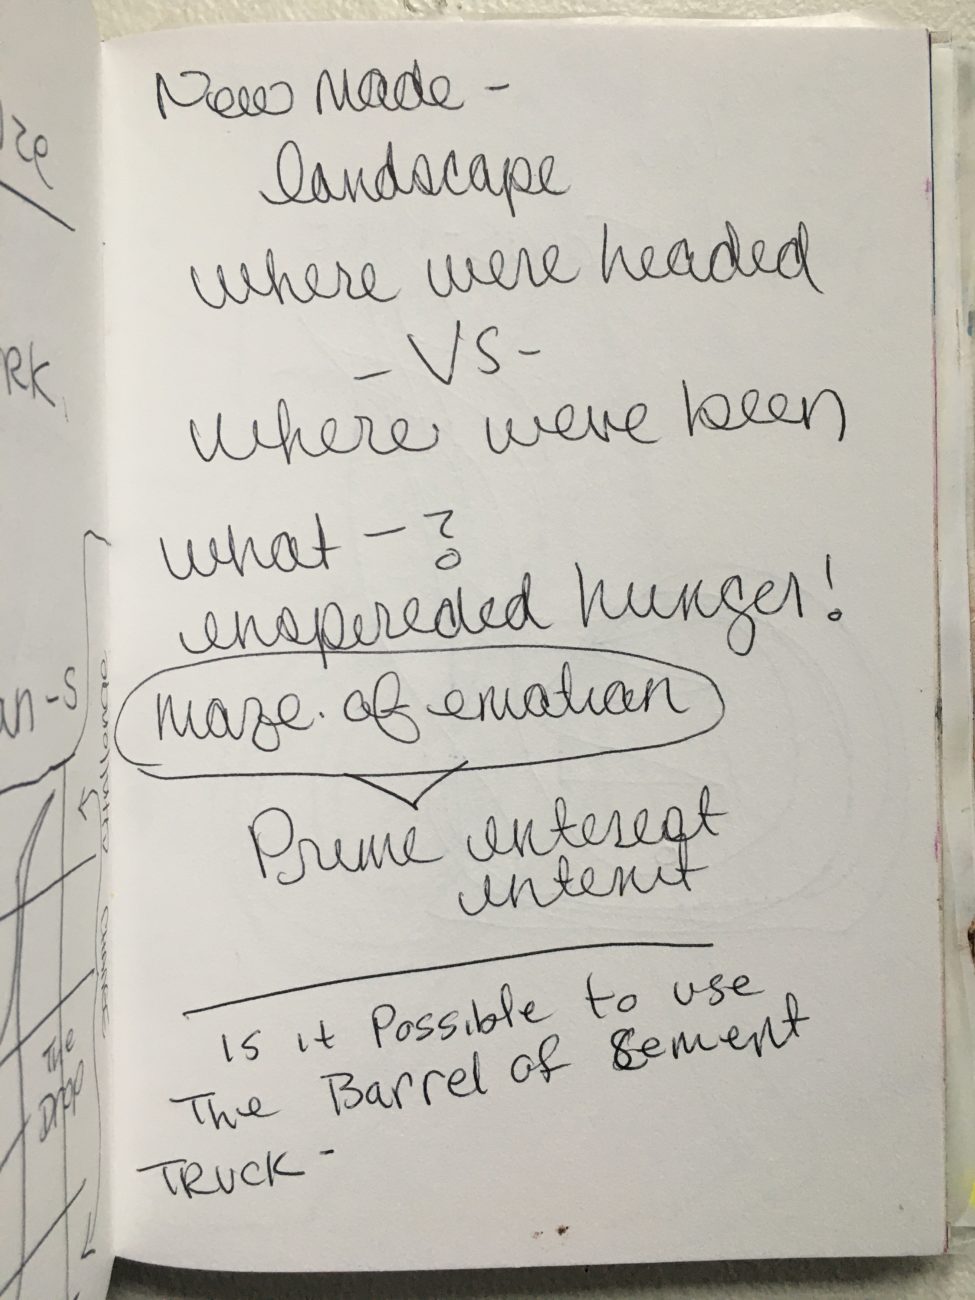 New Made -
landscape
where were headed
- VS -
where were been
what - ?
enspireded hunger!
maze. of emotion
Prime interest
intent
Is it Possible to use
The Barrel of Sement
TRUCK -
RK
an-s
The
Drop